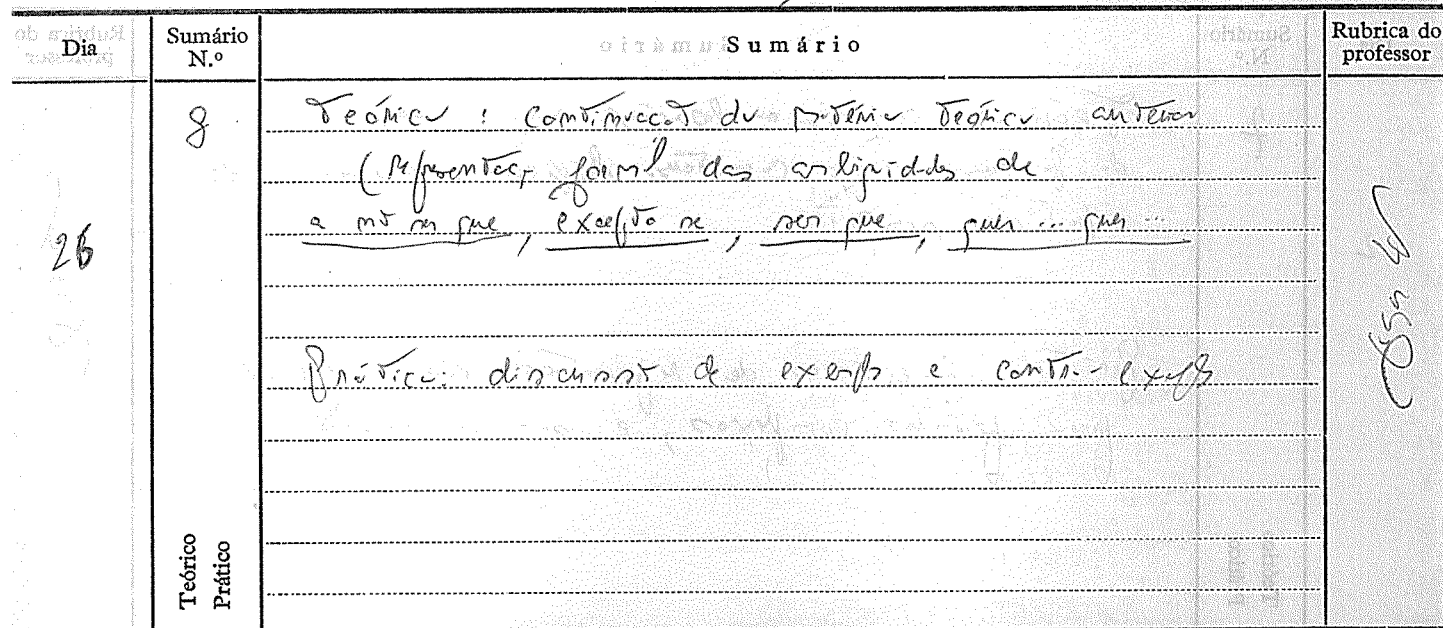 Dia
Sumário N.º
Sumário
Rubrica do professor
26
8
Teórica : Continuação da matéria teórica anterior
(Representação formal das ambiguidades de
a não ser que, excepto se, sem que, quer ... quer ...
Prática: discussão de exemplos e contra-exemplos
Teórico
Prático